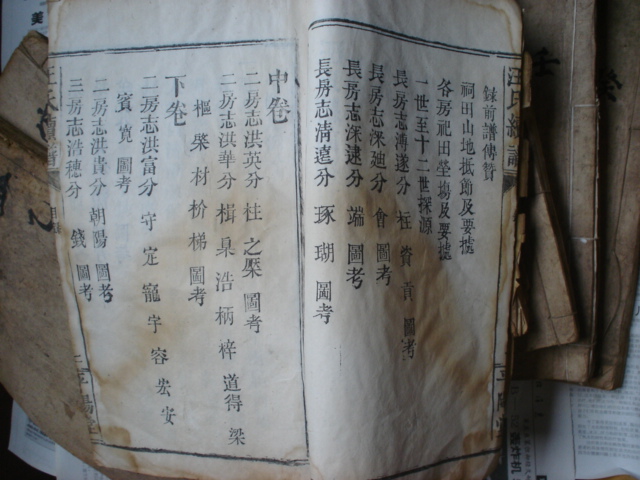 錄前譜傳贊
祠田山地抵飭及要摅
各房祀田塋塲及要摅
一世至十二世探源
長房志溥遂分 枉 資 貢 圖考
長房志深廸分 會 圖考
長房志深逮分 端 圖考
長房志清遠分 琢 瑚 圖考
中卷
二房志洪英分 柱 之 㮚 圖考
二房志洪華分 楫 臬 浩 柄 梓 道得 梁
樞 棨 材 枌 梯 圖考
下卷
二房志洪富分 守 定 寵 宇 容 宏 安
賓 寬 圖考
二房志洪貴分 朝陽 圖考
三房志浩穗分 錢 圖考